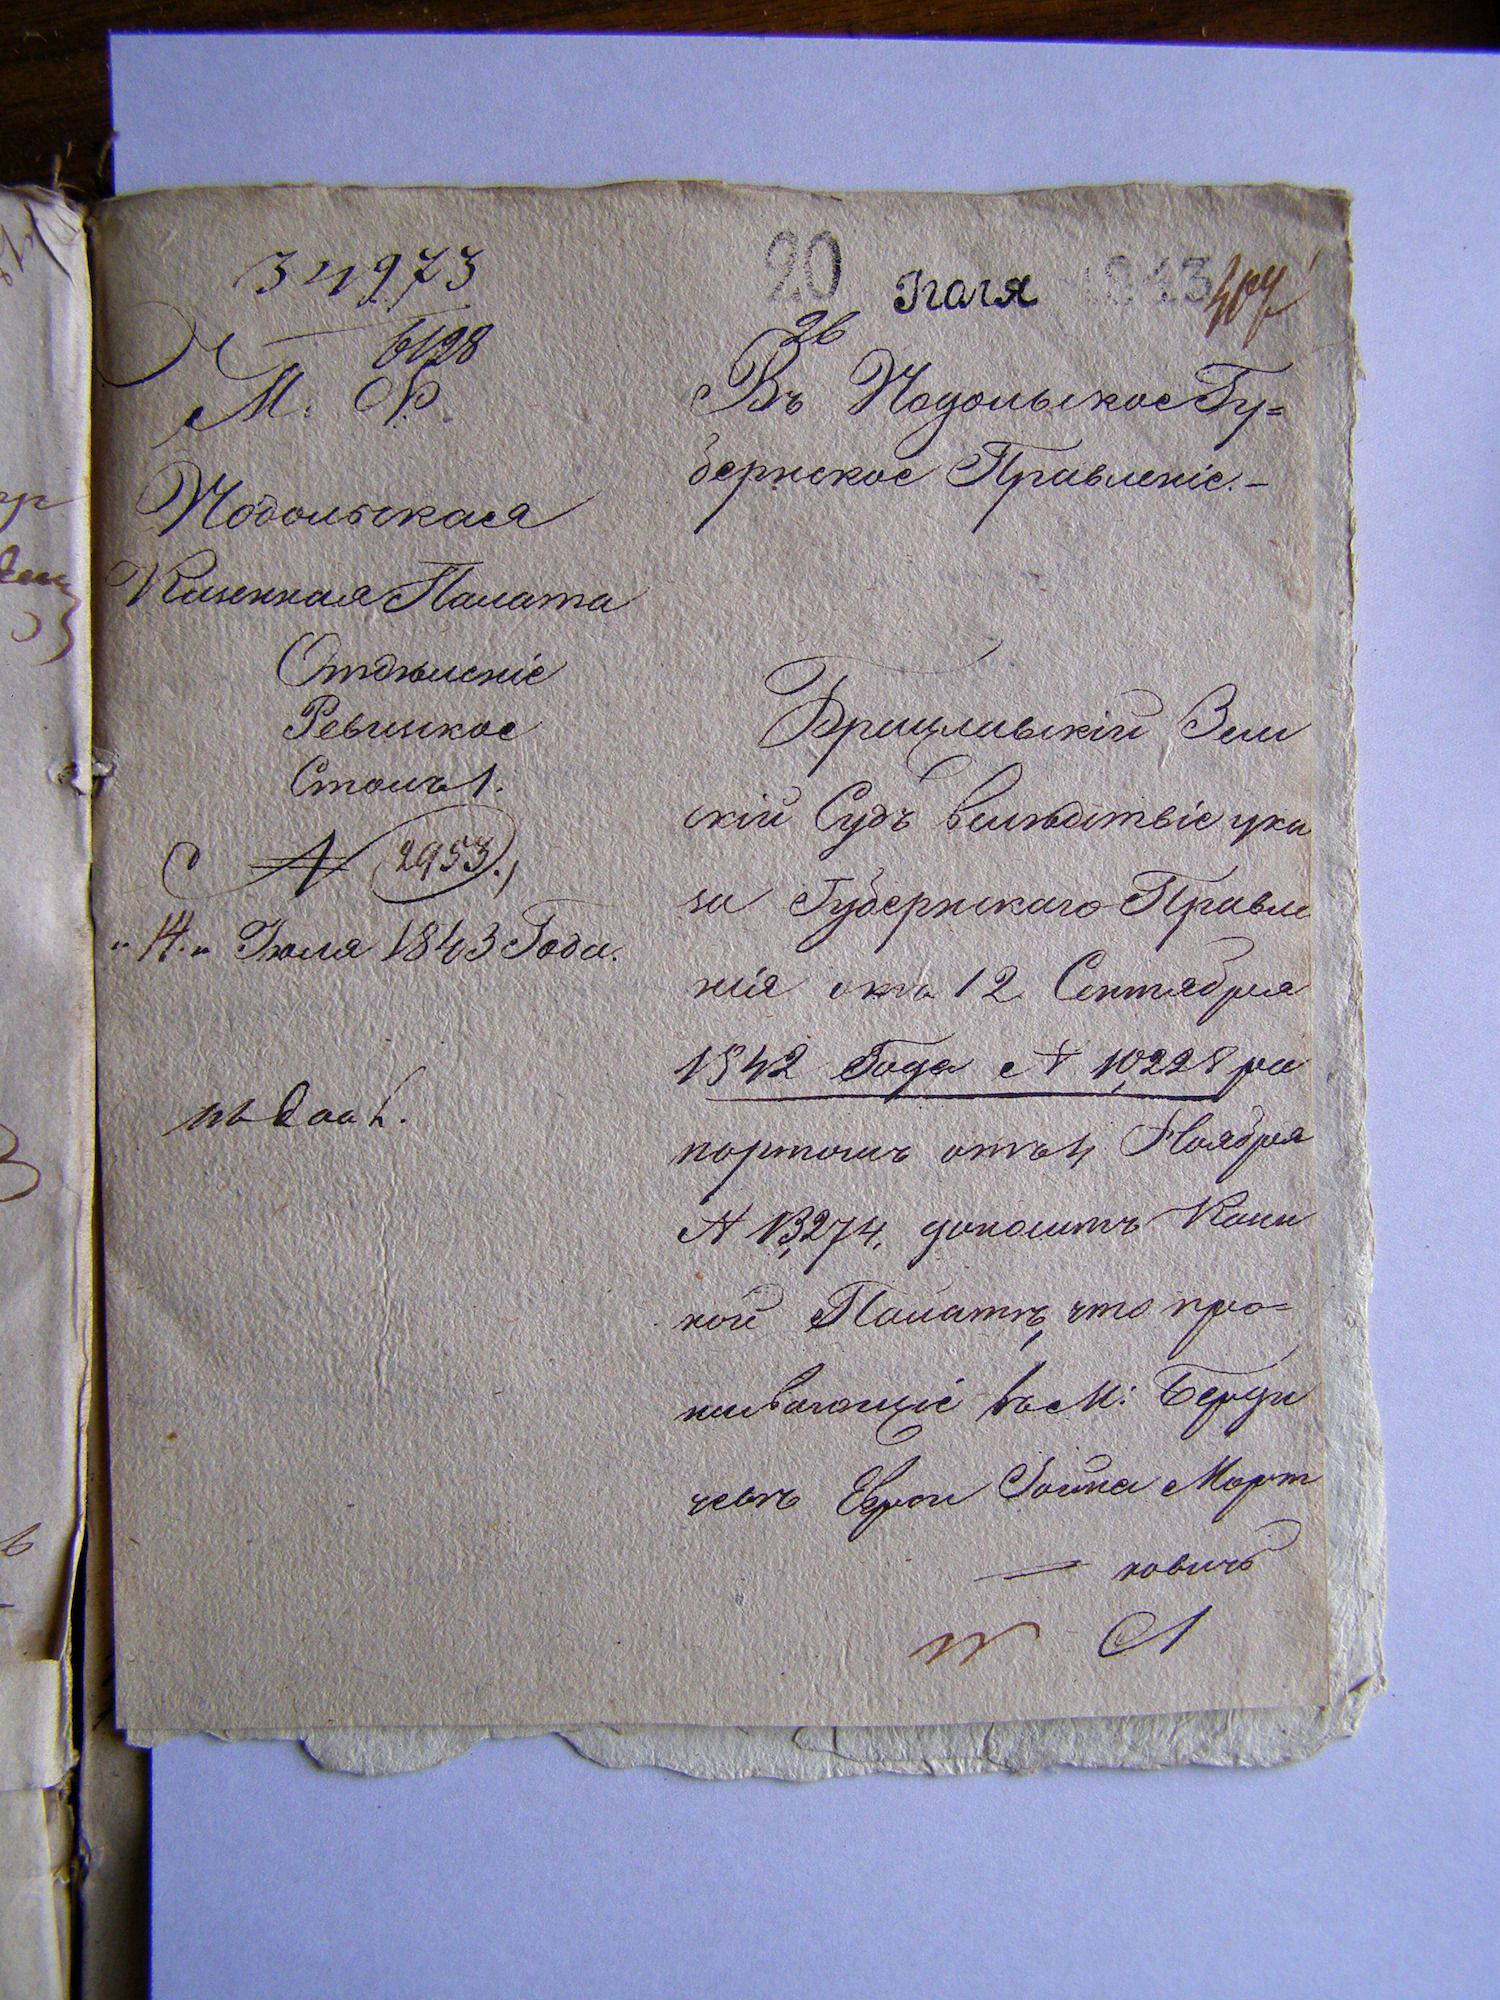 34973
6128
М. Ф.
Подольская
Казенная Палата
Отдѣленіе
Ревизское
Столъ 1.
№ 2953.
"14." Іюля 1843 Года.
20 Іюля 1843
26
Въ Подольское Гу=
бернское Правленіе.-
Брацлавскій Зем
скій Судъ вслѣдствіе ука
за Губернскаго Правле
нія отъ 12 Сентября
1842 Года № 10,228 ра
портомъ отъ 4 Ноября
№ 13,274, доноситъ Казен
ной Палатѣ, что про=
живающіе въ М: Берди
чевѣ Евреи Іойна Морт
ковичъ